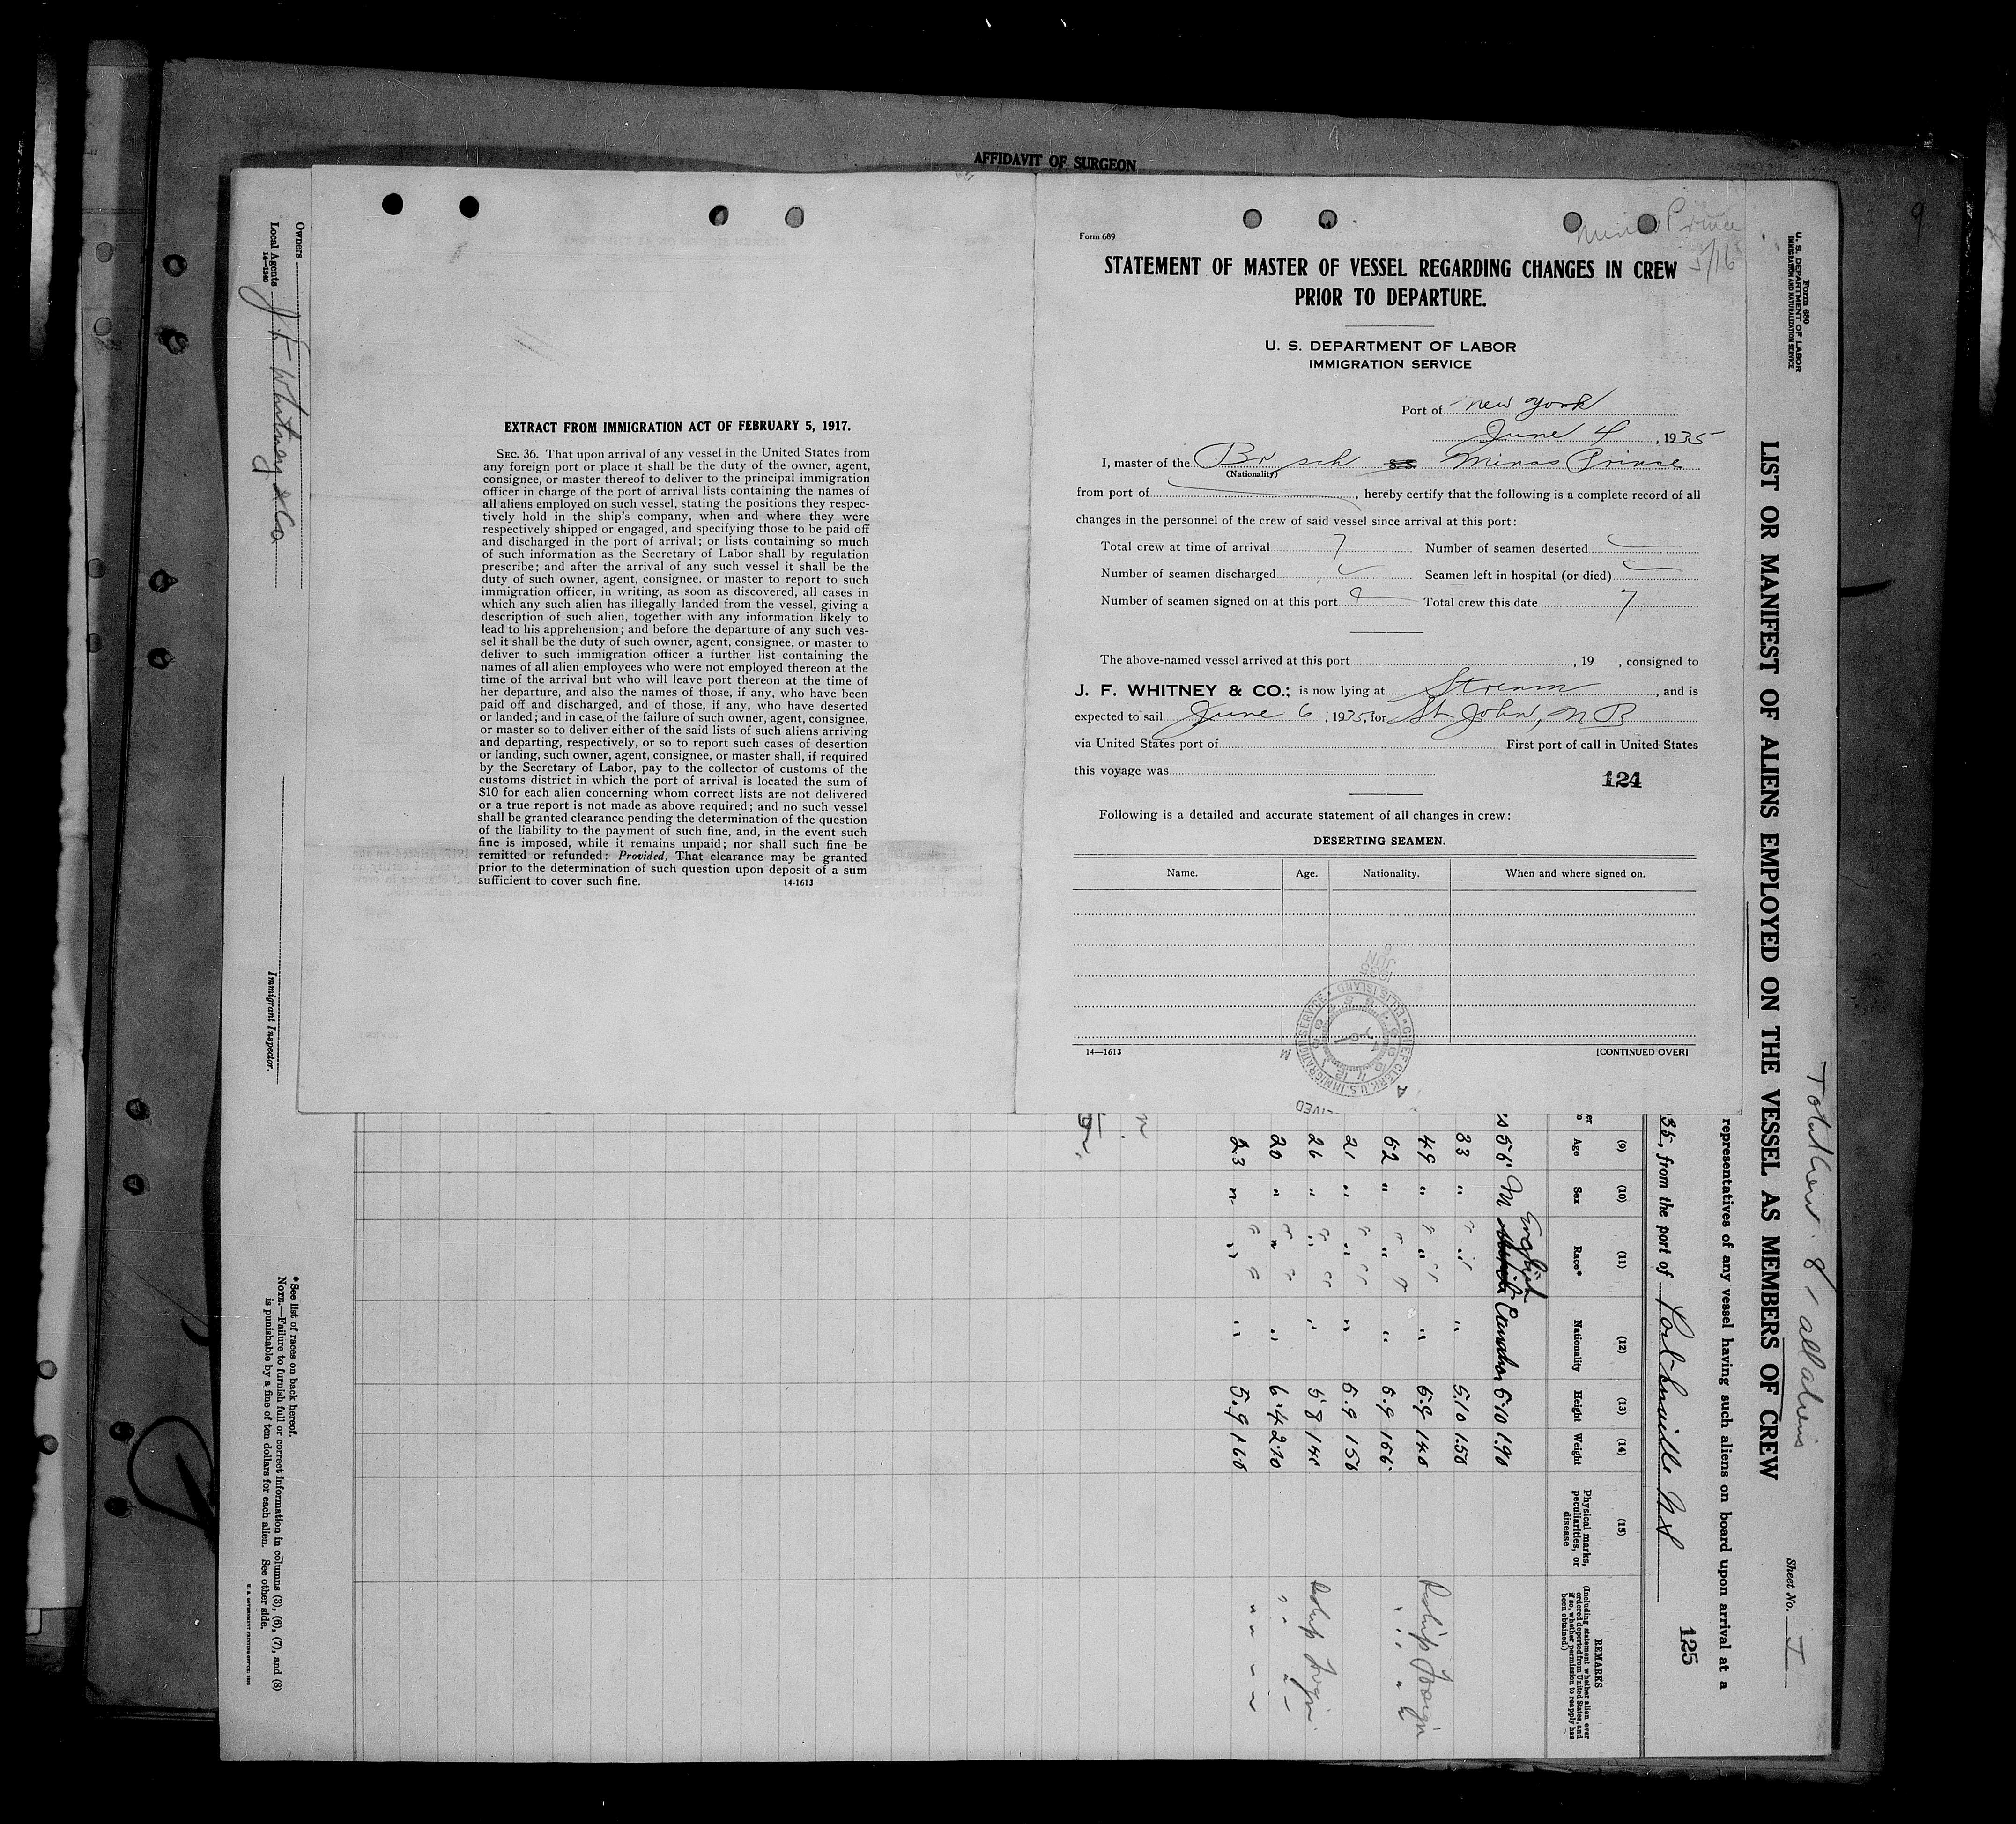 AFFIDAVIT OF SURGEON
9
EXTRACT FROM IMMIGRATION ACT OF FEBRUARY 5, 1917.
SEC. 36. That upon arrival of any vessel in the United States from
any foreign port or place it shall be the duty of the owner, agent,
consignee, or master thereof to deliver to the principal immigration
officer in charge of the port of arrival lists containing the names of
all aliens employed on such vessel, stating the positions they respec-
tively hold in the ship's company, when and where they were
respectively shipped or engaged, and specifying those to be paid off
and discharged in the port of arrival; or lists containing so much
of such information as the Secretary of Labor shall by regulation
prescribe; and after the arrival of any such vessel it shall be the
duty of such owner, agent, consignee, or master to report to such
immigration officer, in writing, as soon as discovered, all cases in
which any such alien has illegally landed from the vessel, giving a
description of such alien, together with any information likely to
lead to his apprehension; and before the departure of any such ves-
sel it shall be the duty of such owner, agent, consignee, or master to
deliver to such immigration officer a further list containing the
names of all alien employees who were not employed thereon at the
time of the arrival but who will leave port thereon at the time of
her departure, and also the names of those, if any, who have been
paid off and discharged, and of those, if any, who have deserted
or landed; and in case of the failure of such owner, agent, consignee,
or master so to deliver either of the said lists of such aliens arriving
and departing, respectively, or so to report such cases of desertion
or landing, such owner, agent, consignee, or master shall, if required
by the Secretary of Labor, pay to the collector of customs of the
customs district in which the port of arrival is located the sum of
$10 for each alien concerning whom correct lists are not delivered
or a true report is not made as above required; and no such vessel
shall be granted clearance pending the determination of the question
of the liability to the payment of such fine, and, in the event such
fine is imposed, while it remains unpaid; nor shall such fine be
remitted or refunded: Provided, That clearance may be granted
prior to the determination of such question upon deposit of a sum
sufficient to cover such fine. 14-1613
Minas Prince
5/16
Form 689
STATEMENT OF MASTER OF VESSEL REGARDING CHANGES IN CREW
PRIOR TO DEPARTURE.
U. S. DEPARTMENT OF LABOR
IMMIGRATION SERVICE
Port of New York
June 4, 1935
I, master of the Br sch SS Minas Prince
(Nationality)
from port of , hereby certify that the following is a complete record of all
changes in the personnel of the crew of said vessel since arrival at this port:
Total crew at time of arrival 7 Number of seamen deserted
Number of seamen discharged Seamen left in hospital (or died)
Number of seamen signed on at this port Total crew this date 7
The above-named vessel arrived at this port , 19 , consigned to
J. F. WHITNEY & CO.; is now lying at Stream, and is
expected to sail June 6, 1935, for St John, N B
via United States port of First port of call in United States
this voyage was
124
Following is a detailed and accurate statement of all changes in crew:
DESERTING SEAMEN.
Name. Age. Nationality. When and where signed on.
14—1613 [CONTINUED OVER]
CHIEF CLERK U.S. IMMIGRATION SERVICE ELLIS ISLAND
JUN
1935
Form 680
U. S. DEPARTMENT OF LABOR
IMMIGRATION AND NATURALIZATION SERVICE
Total Crew. 8 / all aliens
Sheet No. I
LIST OR MANIFEST OF ALIENS EMPLOYED ON THE VESSEL AS MEMBERS OF CREW
representatives of any vessel having such aliens on board upon arrival at a
35, from the port of
125
(9) (10) (11) (12) (13) (14) (15)
Age Sex Race* Nationality Height Weight Physical marks, peculiarities, or disease
REMARKS
(Including statement whether alien ever ordered deported from United States, and if so, whether permission to reapply has been obtained.)
English
56 M Canadian 5.10 190
33 " " " 5.10 150
49 " " " 5.9 140 Reship Foreign
52 " " " 5.9 155 " " "
21 " " " 5.9 150
26 " " " 5 8 140 Reship Foreign
20 " " " 6.4 210 " "
23 " " " 5.9 160 " " " "
Owners
Local Agents J. F. Whitney & Co.
14—1240
Immigrant Inspector.
*See list of races on back hereof.
NOTE.—Failure to furnish full or correct information in columns (3), (6), (7), and (8)
is punishable by a fine of ten dollars for each alien. See other side.
U. S. GOVERNMENT PRINTING OFFICE